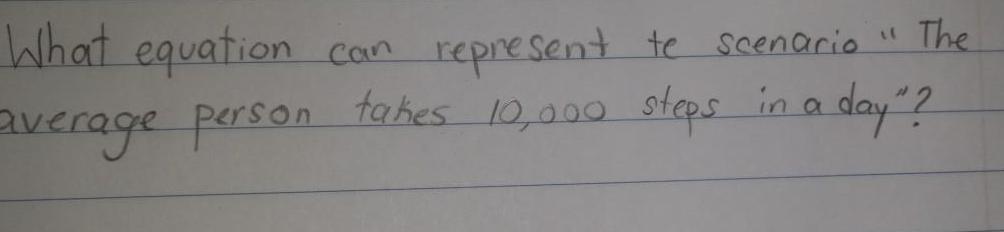 What equation can represent te scenario "The
average person takes 10,000 steps in a day"?